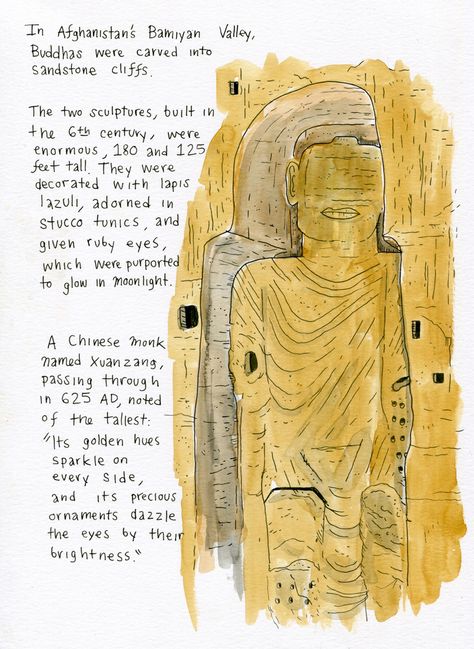 In Afghanistan's Bamiyan Valley,
Buddhas were carved into
sandstone cliffs.
The two sculptures, built in
the 6th century, were
enormous, 180 and 125
feet tall. They were
decorated with lapis
lazuli, adorned in
stucco tunics, and
given ruby eyes,
which were purported
to glow in moonlight.
A Chinese monk
named Xuanzang,
passing through
in 625 AD, noted
of the tallest:
"Its golden hues
sparkle on
every side,
and its precious
ornaments dazzle
the eyes by their
brightness."